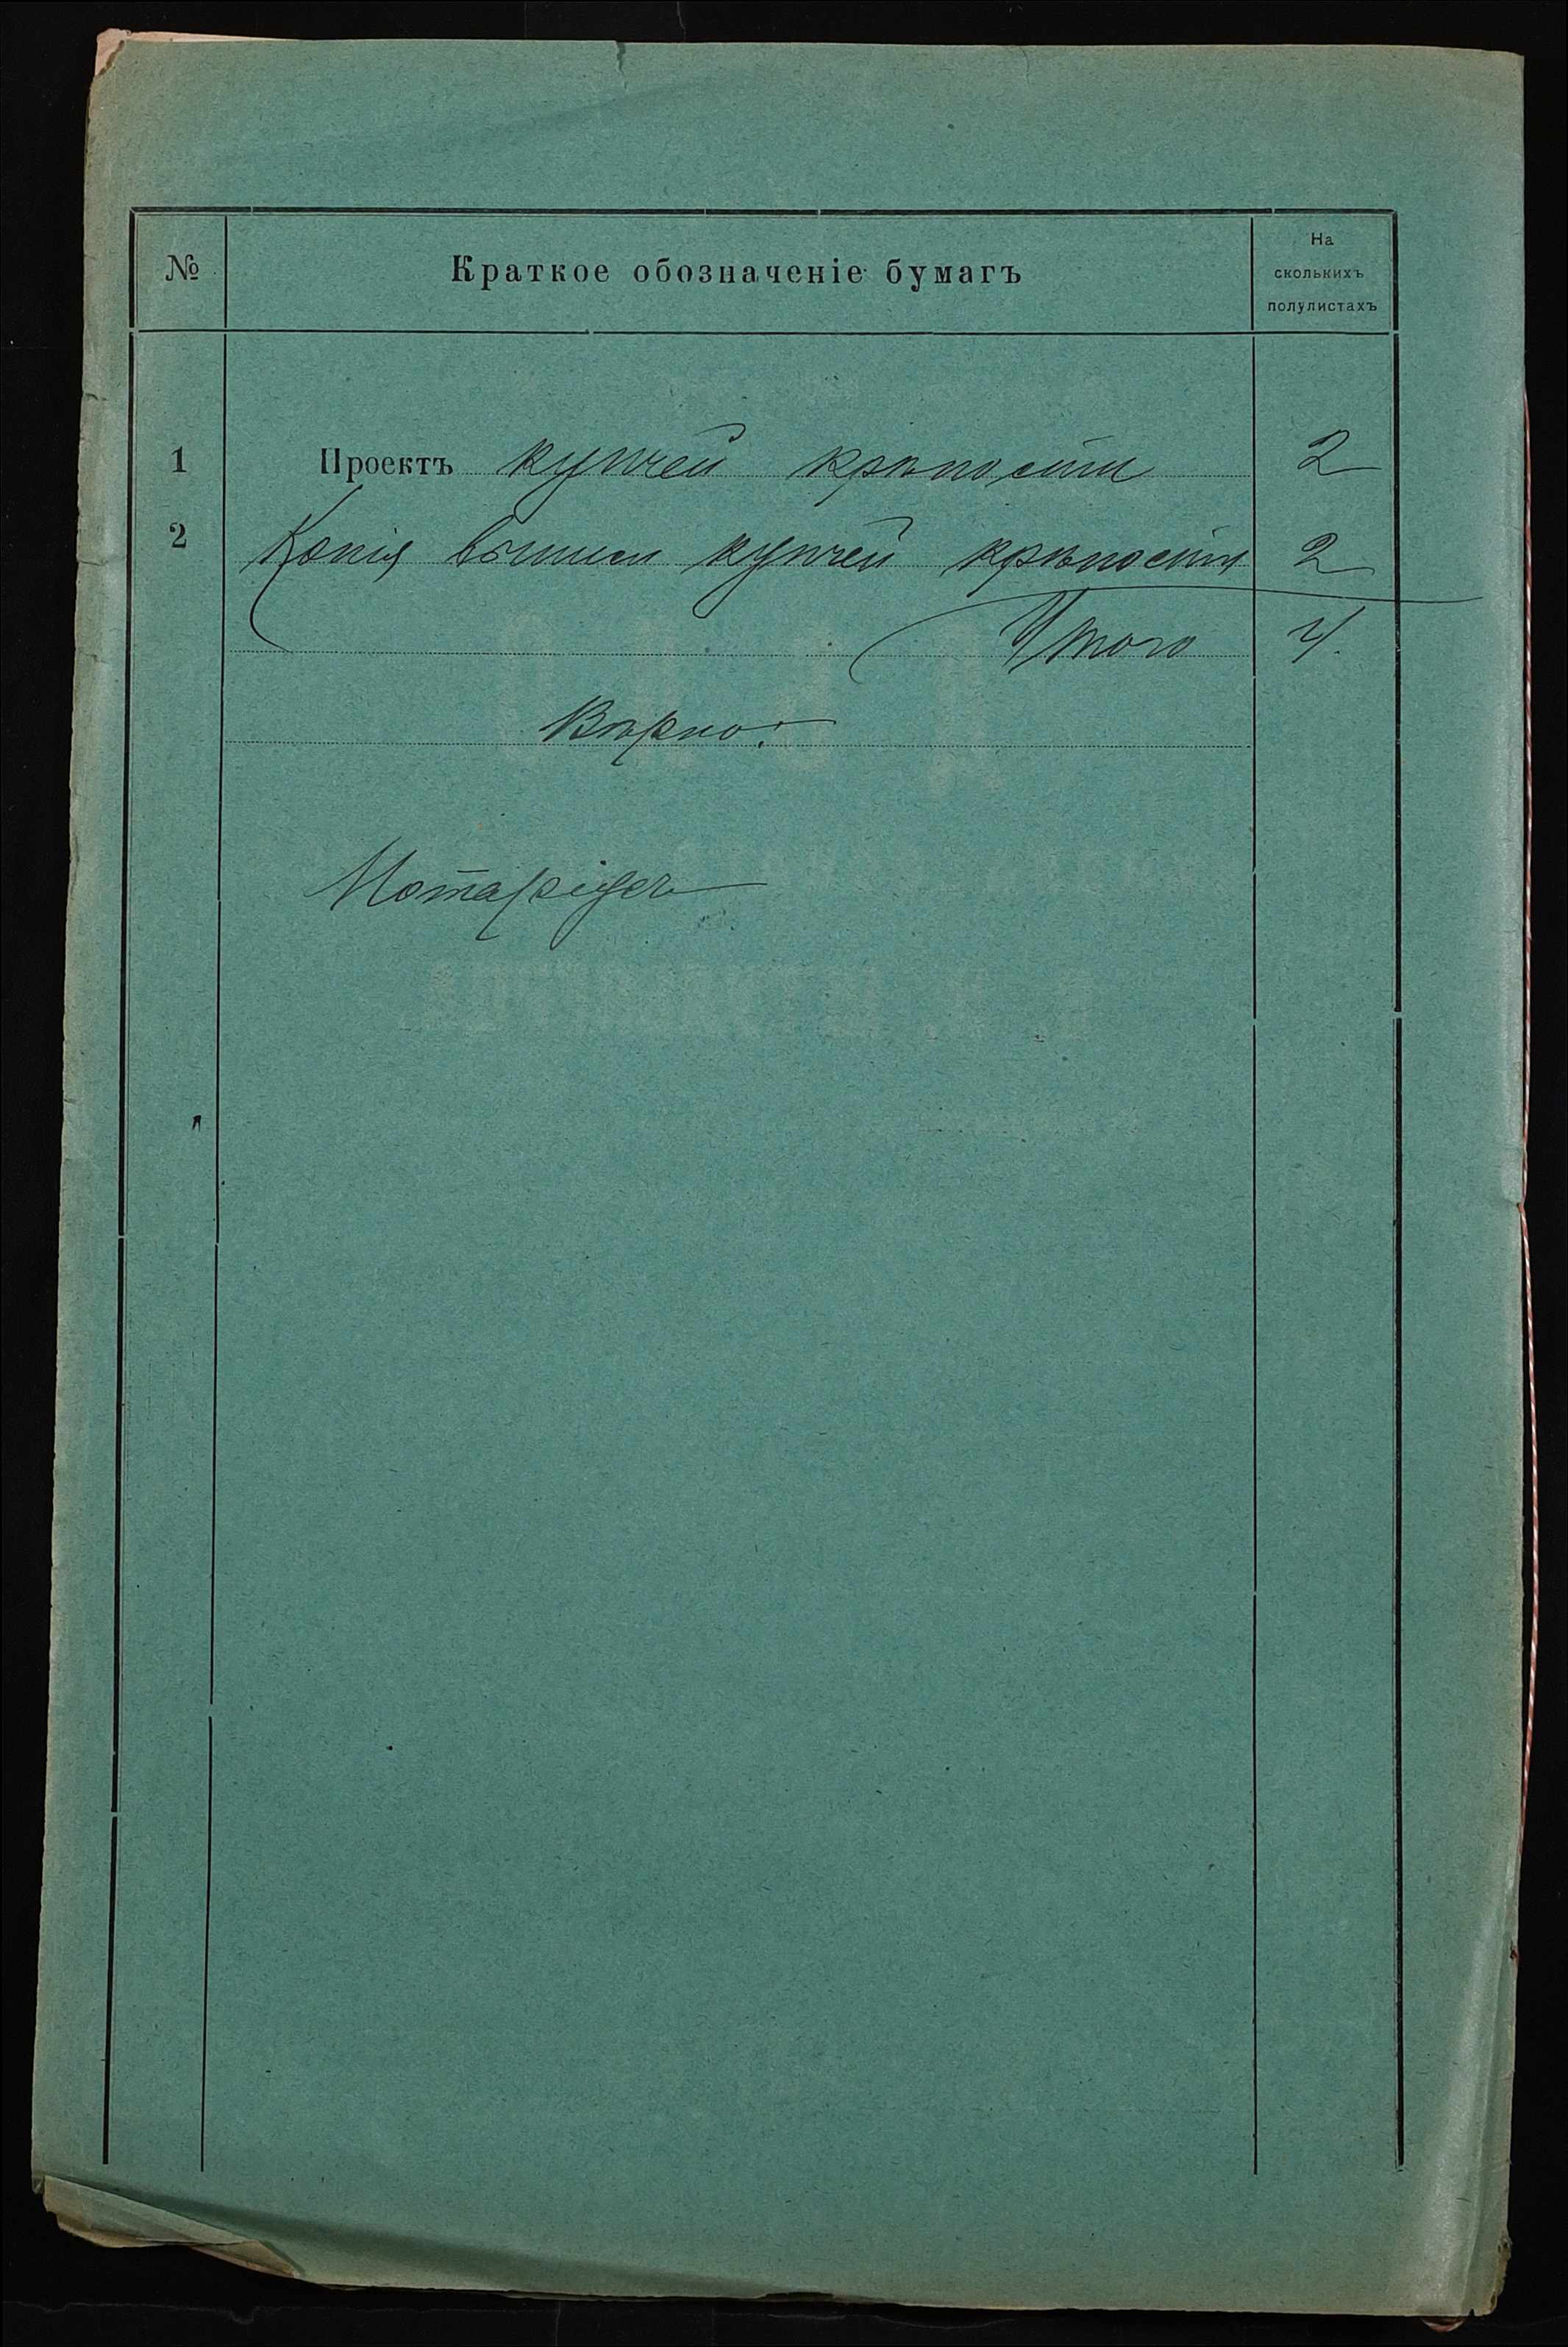 № Краткое обозначеніе бумагъ На сколькихъ полулистахъ
1 Проектъ купчей крѣпости 2
2 Копія выписи купчей крѣпости 2
Итого 4.
Вѣрно:
Нотаріусъ